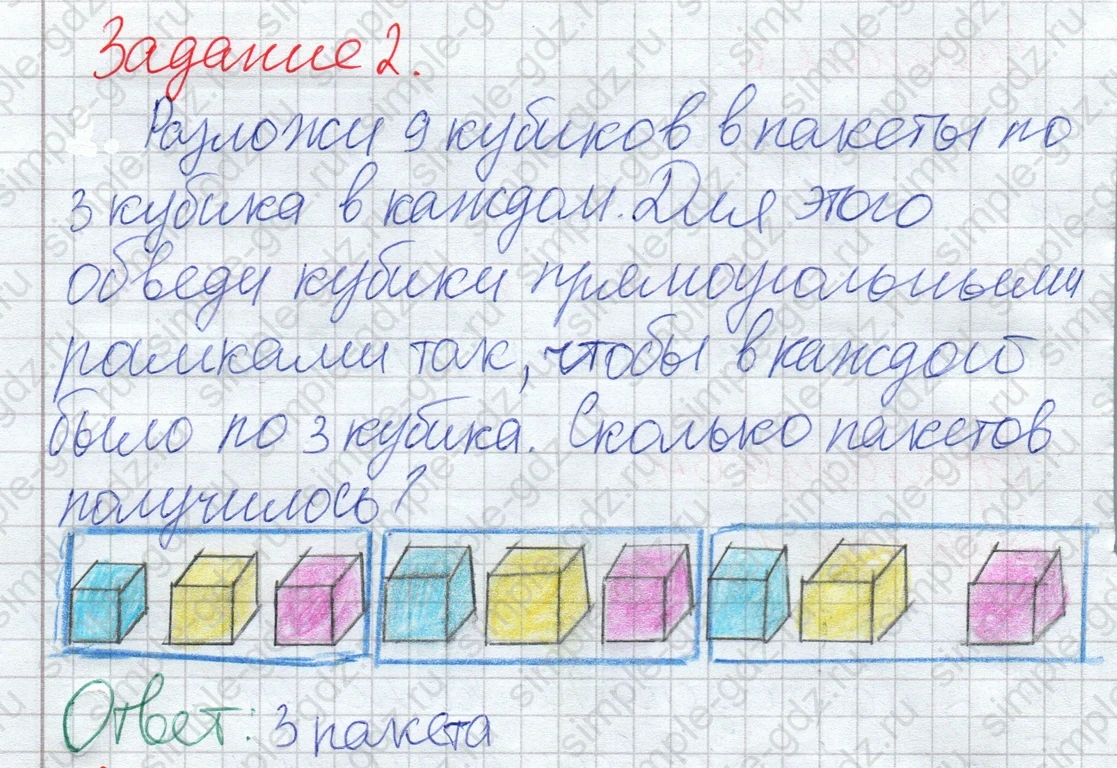 Задание 2.
Разложи 9 кубиков в пакеты по
3 кубика в каждом. Для этого
обведи кубики прямоугольными
рамками так, чтобы в каждой
было по 3 кубика. Сколько пакетов
получилось?
Ответ: 3 пакета
simple-gdz.ru